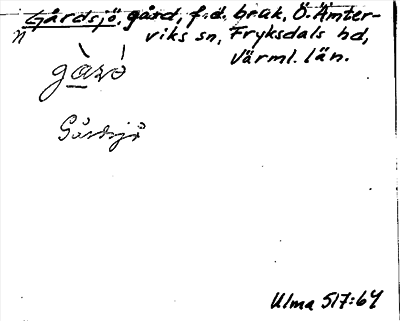 Gårdsjö, gård, f.d. bruk, Ö. Ämter-
viks sn, Fryksdals hd,
Värml. län.
Gårdsjö
Ulma 517:64